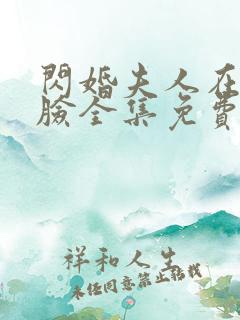 閃婚夫人在
臉全集免費
祥和人生
未经同意禁止转载